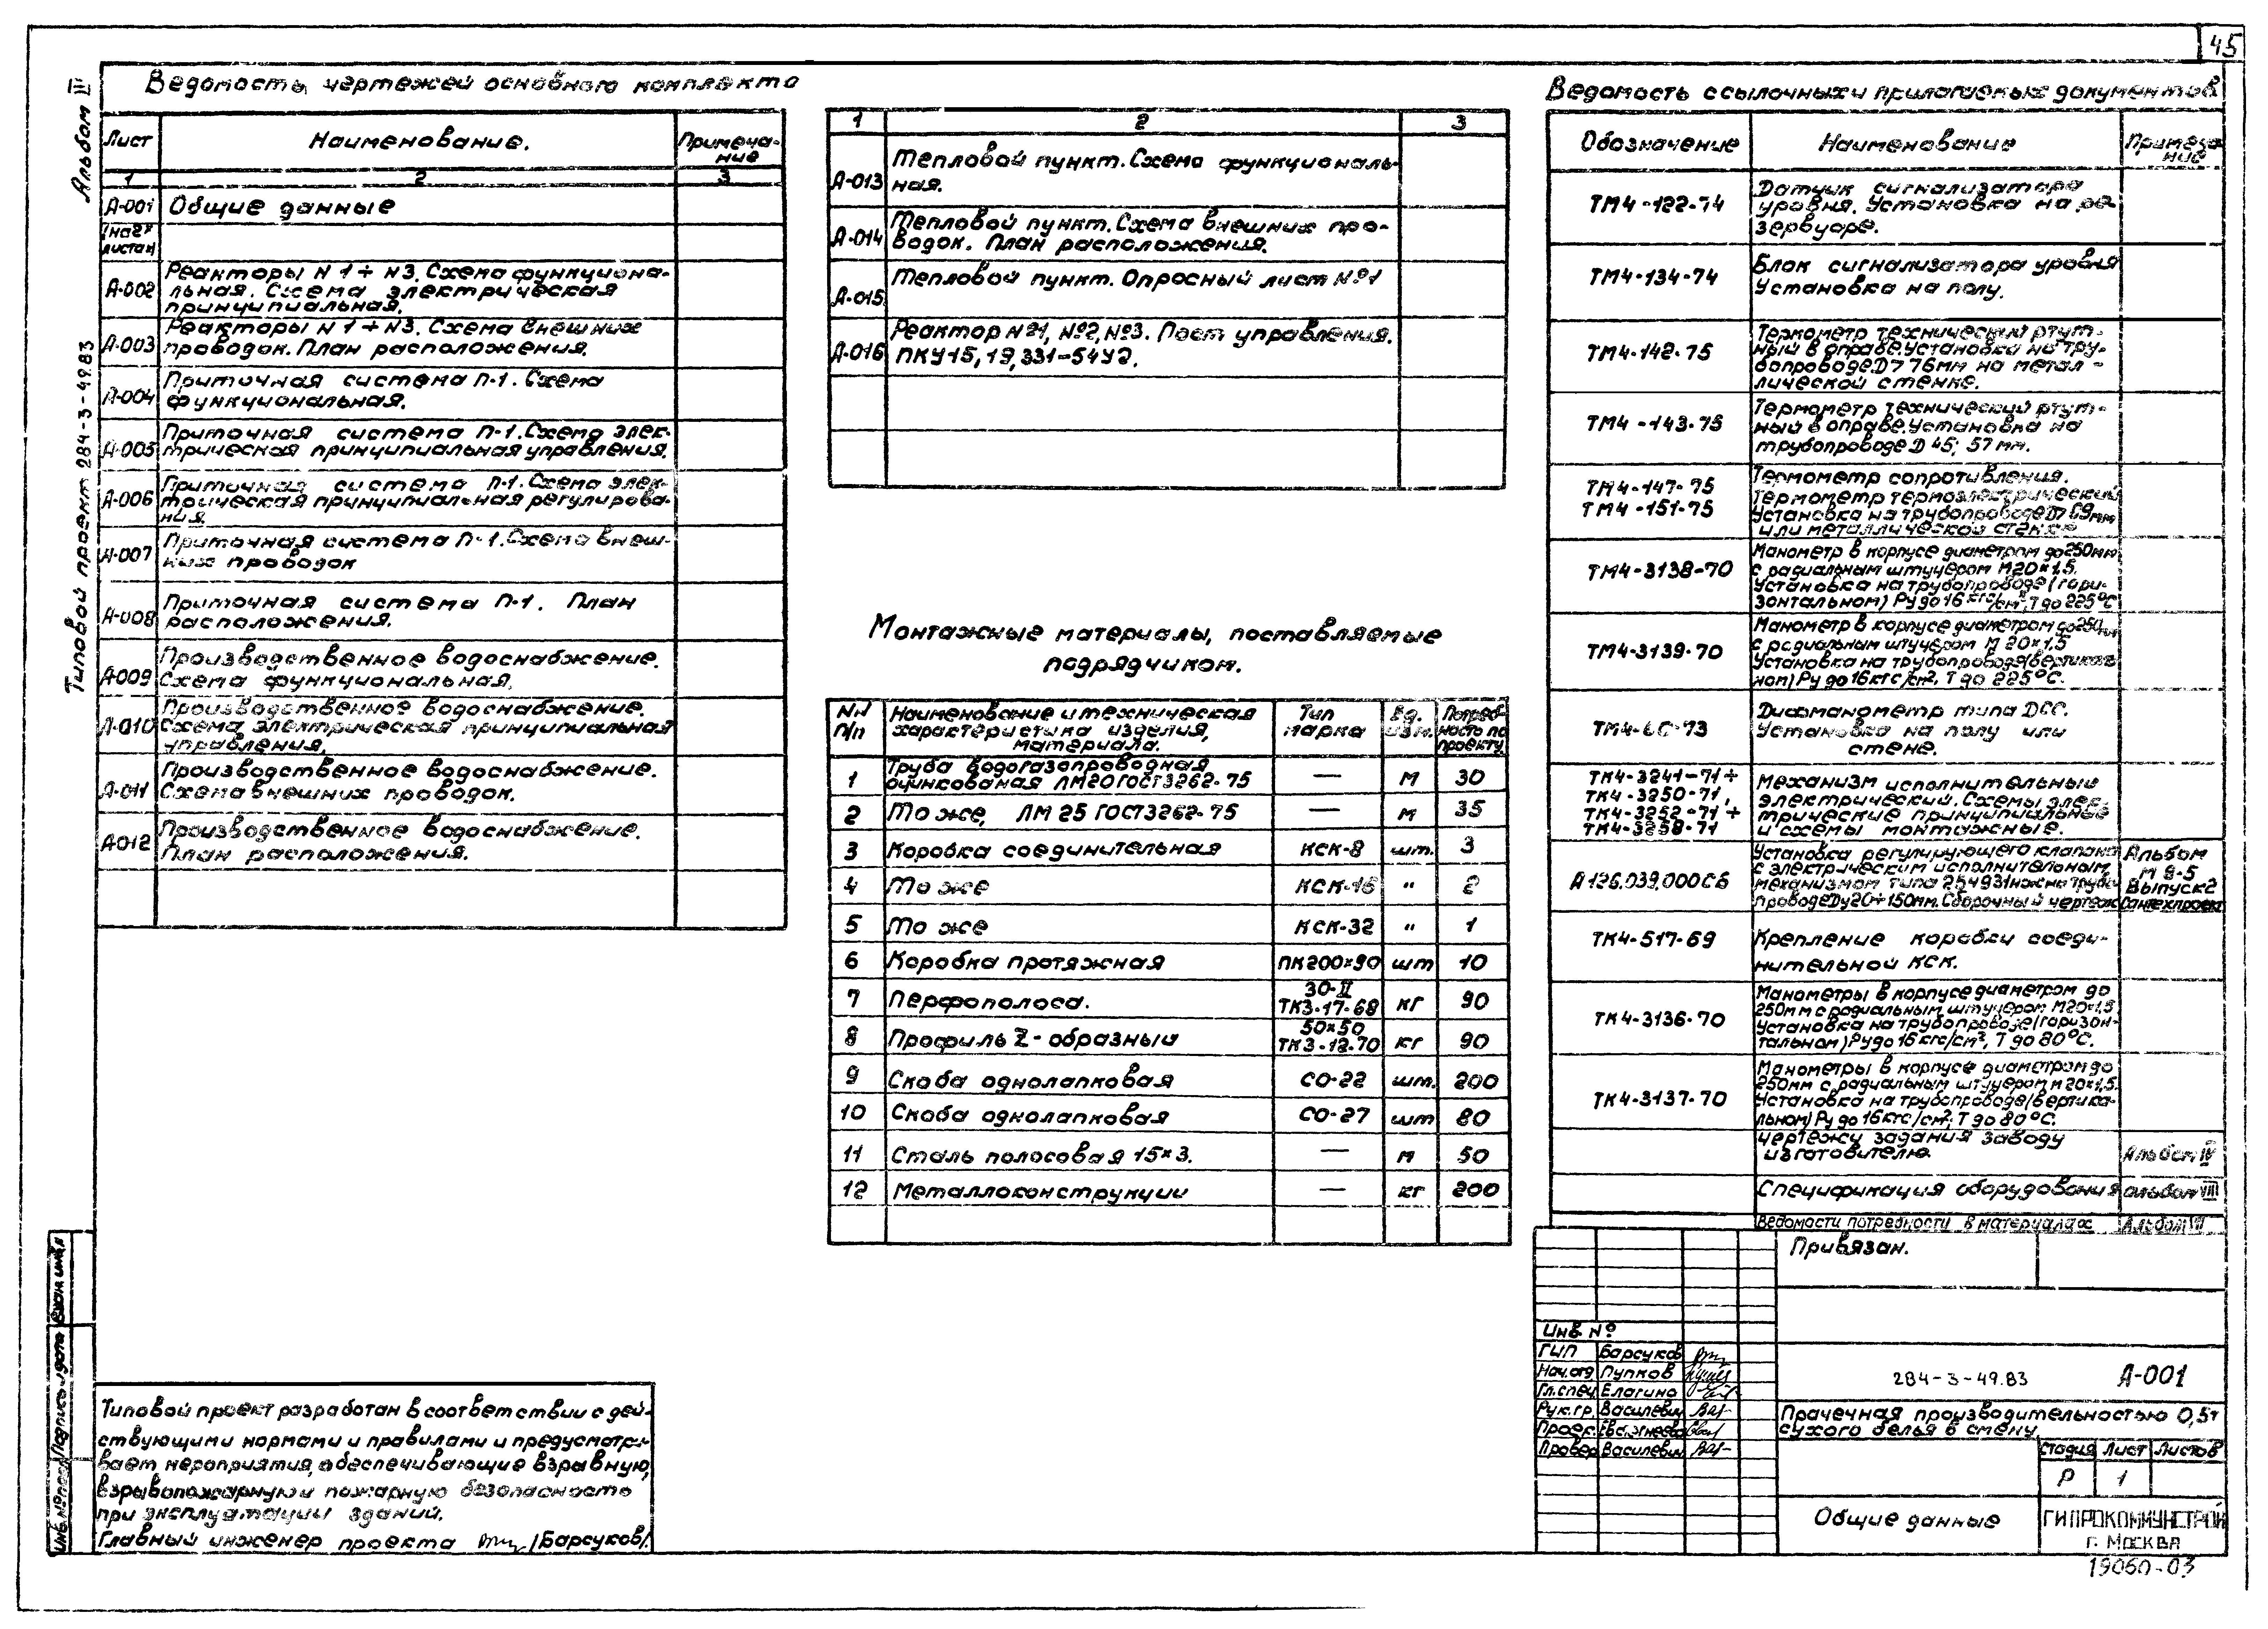 45
Альбом III
Типовой проект 284-3-49.83
Ведомость чертежей основного комплекта
Лист Наименование. Примеча-
ние
1 2 3
А-001 Общие данные
(на 2х
листах)
А-002 Реакторы N 1÷N3. Схема функциона-
льная. Схема электрическая
принципиальная.
А-003 Реакторы N 1÷N3. Схема внешних
проводок. План расположения.
А-004 Приточная система П-1. Схема
функциональная.
А-005 Приточная система П-1. Схема элек-
трическая принципиальная управления.
А-006 Приточная система П-1. Схема элек-
трическая принципиальная регулирова-
ния.
А-007 Приточная система П-1. Схема внеш-
них проводок
А-008 Приточная система П-1. План
расположения.
А-009 Производственное водоснабжение.
Схема функциональная.
А-010 Производственное водоснабжение.
Схема электрическая принципиальная
управления.
А-011 Производственное водоснабжение.
Схема внешних проводок.
А-012 Производственное водоснабжение.
План расположения.
1 2 3
А-013 Тепловой пункт. Схема функциональ-
ная.
А-014 Тепловой пункт. Схема внешних про-
водок. План расположения.
А-015 Тепловой пункт. Опросный лист №1
А-016 Реактор №1, №2, №3. Пост управления.
ПКУ15, 19, 331-54У2.
Монтажные материалы, поставляемые
подрядчиком.
NN
п/п Наименование и техническая
характеристика изделия,
материала. Тип
марка Ед.
изм. Потреб-
ность по
проекту
1 Труба водогазопроводная
оцинкованая ЛМ20 ГОСТ3262-75 — м 30
2 То же, ЛМ 25 ГОСТ3262-75 — м 35
3 Коробка соединительная КСК-8 шт. 3
4 То же КСК-16 " 2
5 То же КСК-32 " 1
6 Коробка протяжная ПК200×90 шт 10
7 Перфополоса. 30-II
ТК3-17-68 кг 90
8 Профиль Z-образный 50×50
ТК3-12-70 кг 90
9 Скоба однолапковая СО-22 шт. 200
10 Скоба однолапковая СО-27 шт 80
11 Сталь полосовая 15×3. — м 50
12 Металлоконструкции — кг 200
Ведомость ссылочных и прилагаемых документов
Обозначение Наименование Примеча
ние
ТМ4-122-74 Датчик сигнализатора
уровня. Установка на ре-
зервуаре.
ТМ4-134-74 Блок сигнализатора уровня
Установка на полу.
ТМ4-142-75 Термометр технический ртут-
ный в оправе. Установка на тру-
бопроводе D>76мм на метал-
лической стенке.
ТМ4-143-75 Термометр технический ртут-
ный в оправе. Установка на
трубопроводе D 45; 57 мм.
ТМ4-147-75
ТМ4-151-75 Термометр сопротивления.
Термометр термоэлектрический
Установка на трубопроводе D>
или металлической стенке
ТМ4-3138-70 Манометр в корпусе диаметром до 250мм
с радиальным штуцером М20×1,5.
Установка на трубопроводе (гори-
зонтальном) Ру до 16 кгс/см², Т до 225°С
ТМ4-3139-70 Манометр в корпусе диаметром до 250мм
с радиальным штуцером М 20×1,5
Установка на трубопроводе (вертикаль
ном) Ру до 16 кгс/см², Т до 225°С.
ТМ4-60-73 Дифманометр типа ДСС.
Установка на полу или
стене.
ТК4-3241-71÷
ТК4-3250-71,
ТК4-3252-71÷
ТК4-3258-71 Механизм исполнительный
электрический. Схемы элек-
трические принципиальные
и схемы монтажные.
А 126.039.000СБ Установка регулирующего клапана
с электрическим исполнительным
механизмом типа 25ч931нж на трубо
проводе Dу20÷150мм. Сборочный чертеж Альбом
М 8-5
Выпуск 2
Сантехпроект
ТК4-517-69 Крепление коробки соеди-
нительной КСК.
ТК4-3136-70 Манометры в корпусе диаметром до
250мм с радиальным штуцером М20×1,5
Установка на трубопроводе (горизон-
тальном) Ру до 16 кгс/см², Т до 80°С.
ТК4-3137-70 Манометры в корпусе диаметром до
250мм с радиальным штуцером М20×1,5.
Установка на трубопроводе (вертика-
льном) Ру до 16 кгс/см², Т до 80°С.
Чертежи задания заводу
изготовителю. Альбом IV
Спецификация оборудования альбом VIII
Ведомости потребности в материалах Альбом VII
Привязан.
Инв. №
ГИП Барсуков
Нач.отд Пупков
Гл.спец Елагина
Рук.гр. Василевич
Проер.
Провер Василевич
284-3-49.83 А-001
Прачечная производительностью 0,5т
сухого белья в смену
Стадия Лист Листов
Р 1
Общие данные ГИПРОКОММУНСТРОЙ
г. Москва
19060-03
Типовой проект разработан в соответствии с дей-
ствующими нормами и правилами и предусматри-
вает мероприятия, обеспечивающие взрывную,
взрывопожарную и пожарную безопасность
при эксплуатации зданий.
Главный инженер проекта /Барсуков/.
Взам. инв. №
Подпись и дата
Инв. № подл.